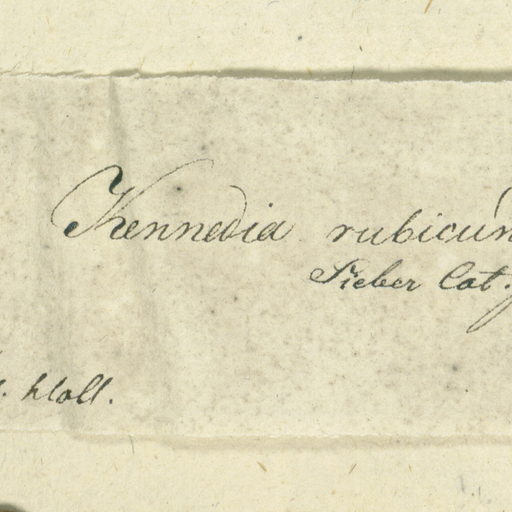 Kennedia rubicun
Sieber Cat.
. Holl.